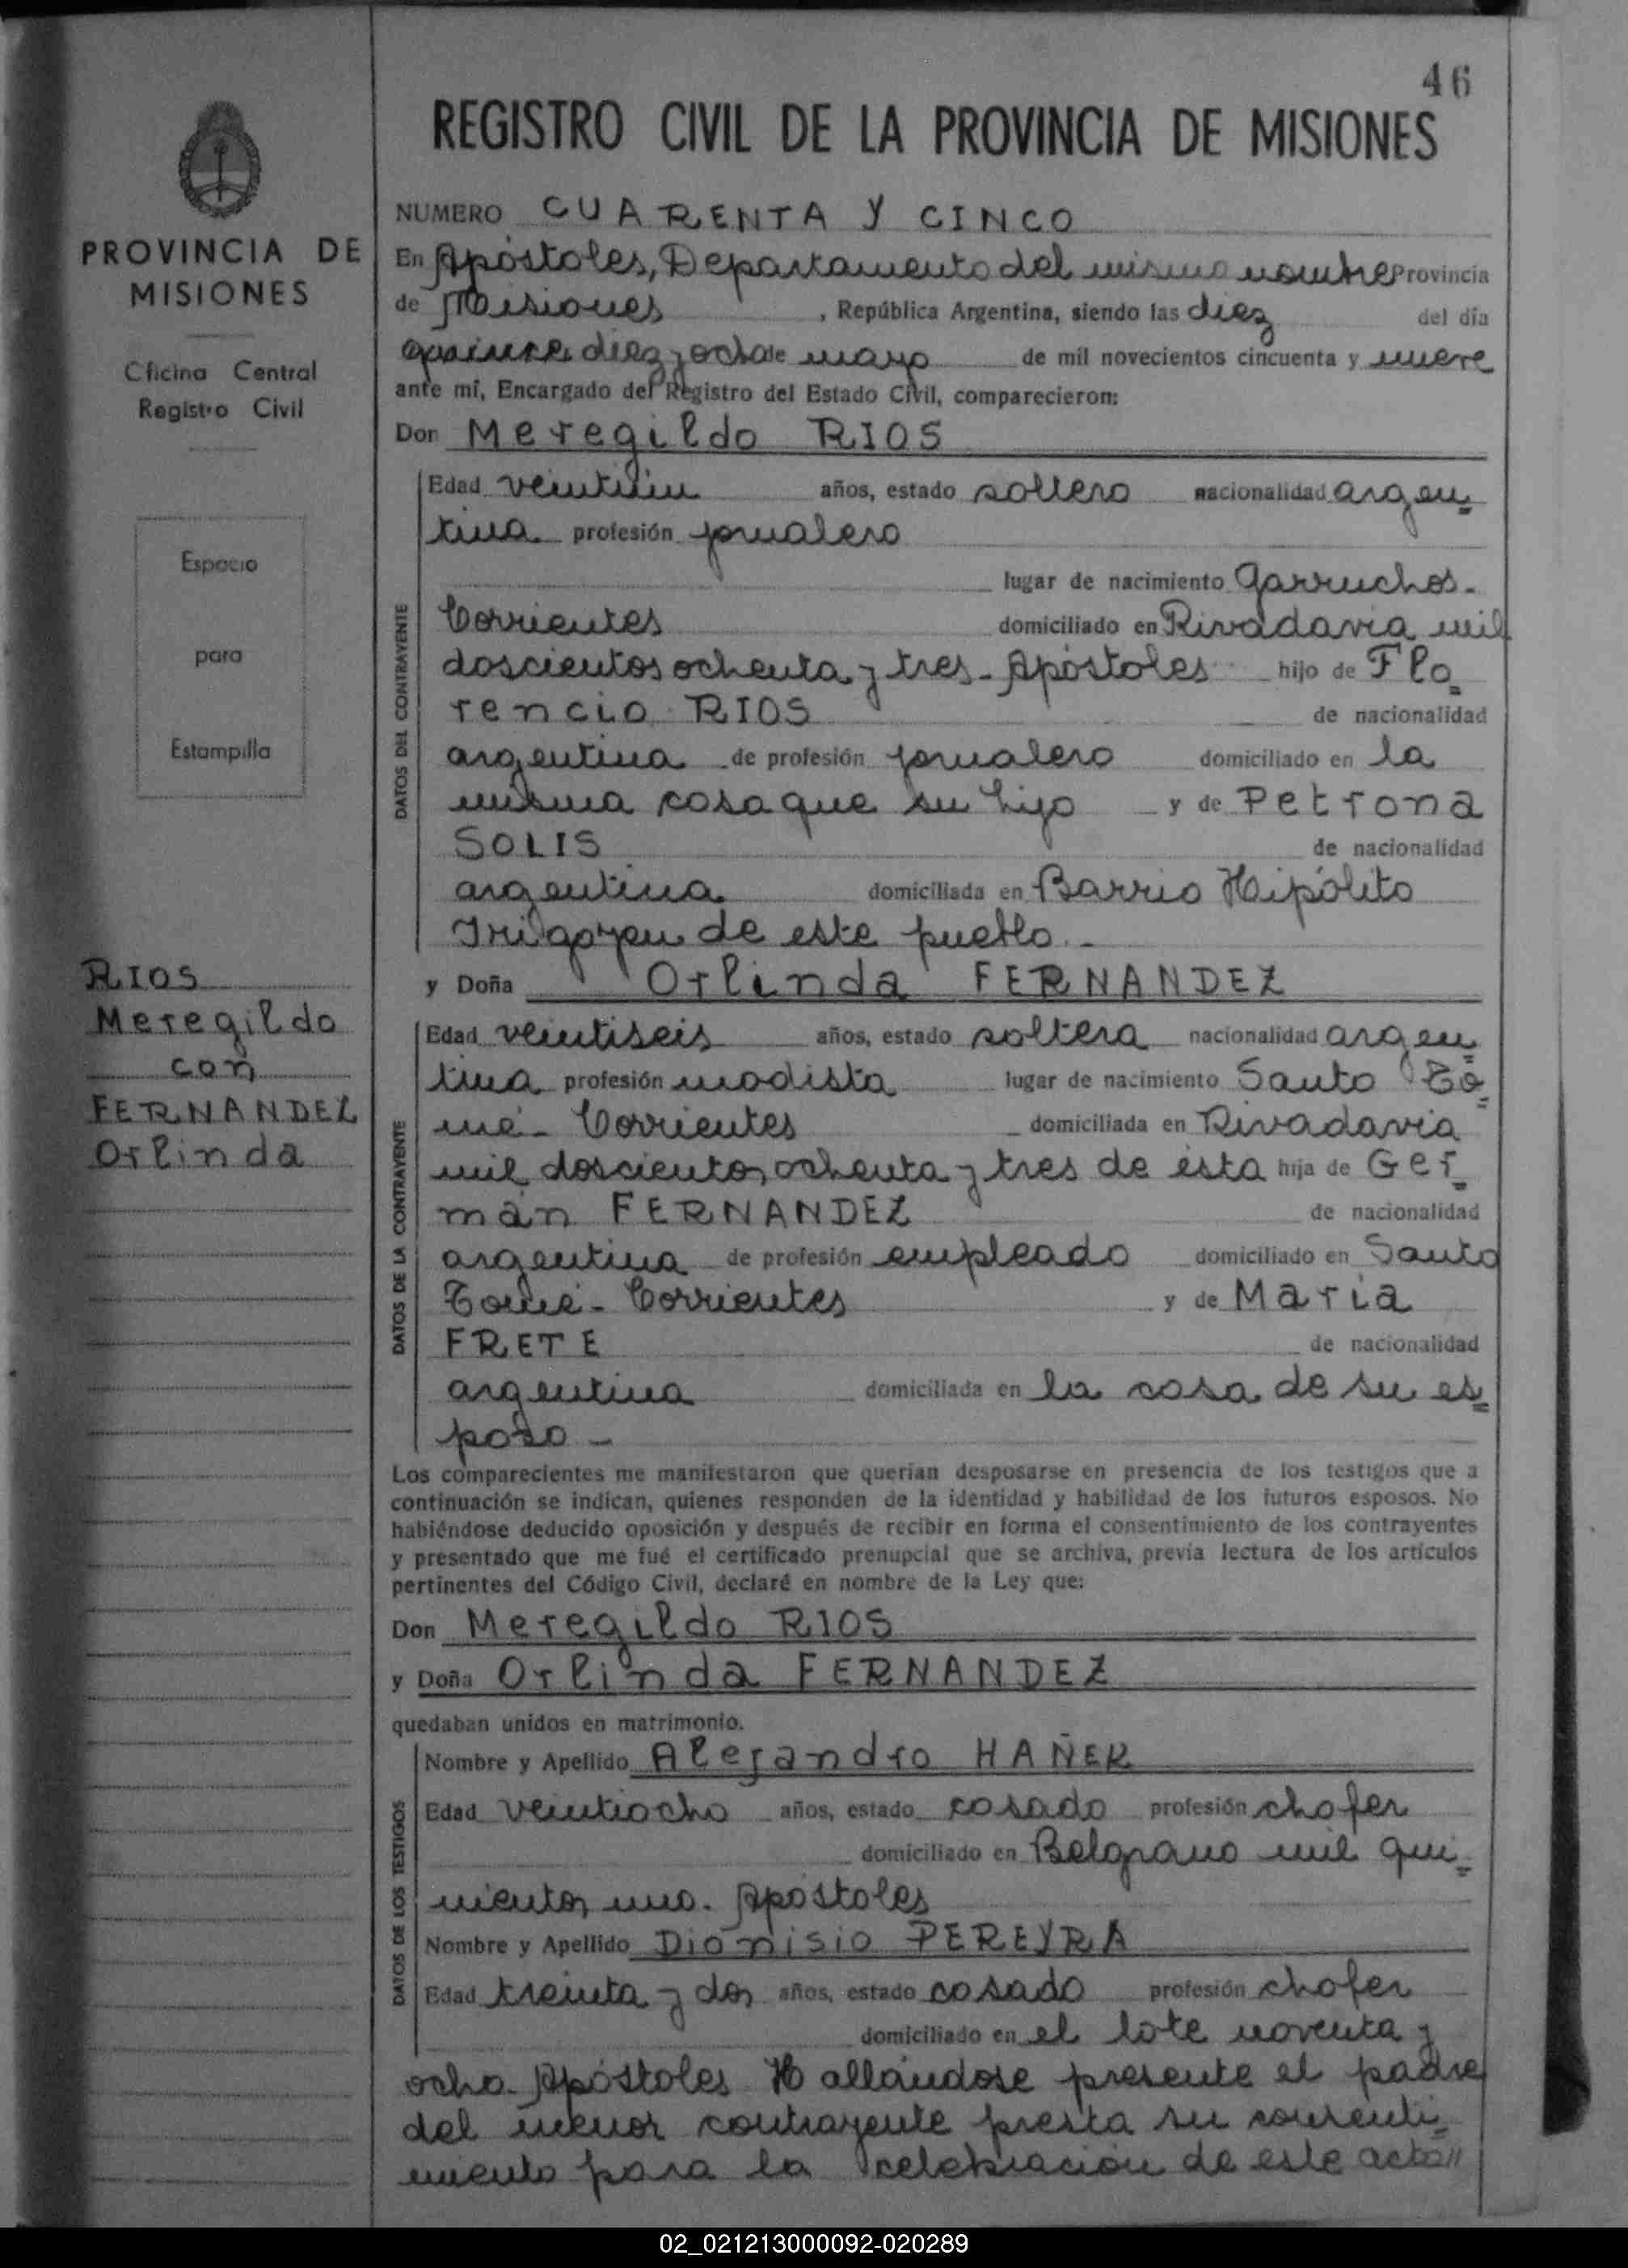 46
REGISTRO CIVIL DE LA PROVINCIA DE MISIONES
PROVINCIA DE
MISIONES
Oficina Central
Registro Civil
Espacio
para
Estampilla
RIOS
Meregildo
con
FERNANDEZ
Orlinda
NUMERO CUARENTA Y CINCO
En Apóstoles, Departamento del mismo nombre Provincia
de Misiones, República Argentina, siendo las diez del día
quince diez y ocho de mayo de mil novecientos cincuenta y nueve
ante mí, Encargado del Registro del Estado Civil, comparecieron:
Don Meregildo RIOS
DATOS DEL CONTRAYENTE
Edad años, estado soltero nacionalidad argen=
tina profesión jornalero
lugar de nacimiento Garruchos.
Corrientes domiciliado en Rivadavia mil
doscientos ochenta y tres. Apóstoles hijo de Flo=
rencio RIOS de nacionalidad
argentina de profesión jornalero domiciliado en la
misma casa que su hijo y de Petrona
SOLIS de nacionalidad
argentina domiciliada en Barrio Hipólito
Irigoyen de este pueblo.-
y Doña Orlinda FERNANDEZ
DATOS DE LA CONTRAYENTE
Edad veintiseis años, estado soltera nacionalidad argen=
tina profesión modista lugar de nacimiento Santo To=
mé- Corrientes domiciliada en Rivadavia
mil doscientos ochenta y tres de ésta hija de Ger=
mán FERNANDEZ de nacionalidad
argentina de profesión empleado domiciliado en Santo
Tomé- Corrientes y de María
FRETE de nacionalidad
argentina domiciliada en la casa de su es=
poso-
Los comparecientes me manifestaron que querían desposarse en presencia de los testigos que a
continuación se indican, quienes responden de la identidad y habilidad de los futuros esposos. No
habiéndose deducido oposición y después de recibir en forma el consentimiento de los contrayentes
y presentado que me fué el certificado prenupcial que se archiva, previa lectura de los artículos
pertinentes del Código Civil, declaré en nombre de la Ley que:
Don Meregildo RIOS
y Doña Orlinda FERNANDEZ
quedaban unidos en matrimonio.
DATOS DE LOS TESTIGOS
Nombre y Apellido Alejandro HAÑEK
Edad veintiocho años, estado casado profesión chofer
domiciliado en Belgrano mil qui=
nientos uno. Apóstoles
Nombre y Apellido Dionisio PEREYRA
Edad treinta y dos años, estado casado profesión chofer
domiciliado en el lote noventa y
ocho. Apóstoles Hallándose presente el padre
del menor contrayente presta su consenti=
miento para la celebración de este acto//
02_021213000092-020289